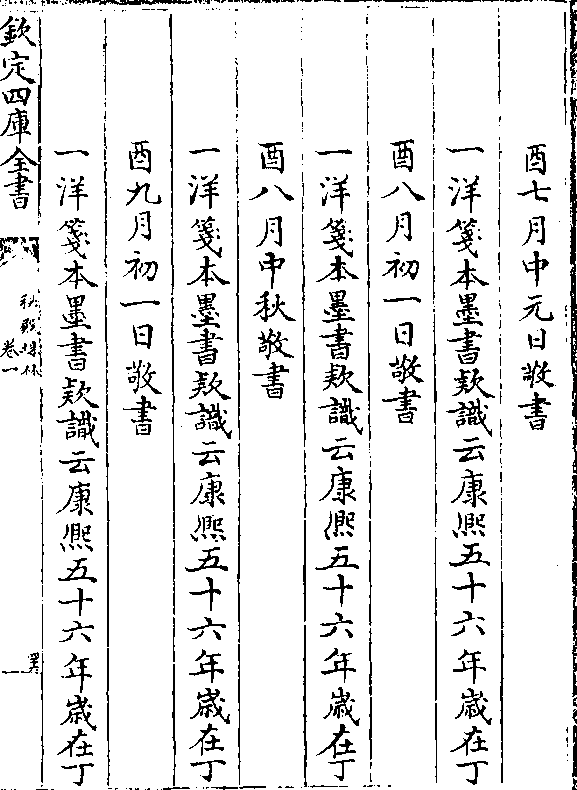 酉七月中元日敬書
一洋箋本墨書欵識云康熙五十六年歳在丁
酉八月初一日敬書
一洋箋本墨書欵識云康熙五十六年歳在丁
酉八月中秋敬書
一洋箋本墨書欵識云康熙五十六年歳在丁
酉九月初一日敬書
一洋箋本墨書欵識云康熙五十六年歳在丁
欽定四庫全書
秘殿珠林
卷一